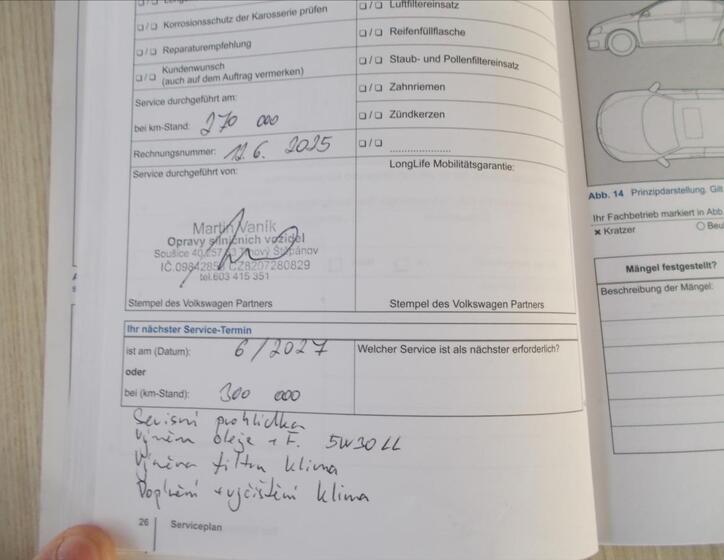 ❑ / ❑ Korrosionsschutz der Karosserie prüfen
❑ / ❑ Reparaturempfehlung
❑ / ❑ Kundenwunsch
(auch auf dem Auftrag vermerken)
Service durchgeführt am:
bei km-Stand: 270 000
Rechnungsnummer: 12.6. 2025
Service durchgeführt von:
Martin Vaník
Opravy silničních vozidel
Soušice 40, 257 Štěpánov
IČ.0984285 CZ8207280829
tel.603 415 351
Stempel des Volkswagen Partners
❑ / ❑ Luftfiltereinsatz
❑ / ❑ Reifenfüllflasche
❑ / ❑ Staub- und Pollenfiltereinsatz
❑ / ❑ Zahnriemen
❑ / ❑ Zündkerzen
❑ / ❑ .....................
LongLife Mobilitätsgarantie:
Stempel des Volkswagen Partners
Ihr nächster Service-Termin
ist am (Datum): 6/2027
oder
bei (km-Stand): 300 000
Welcher Service ist als nächster erforderlich?
Servisní prohlídka
Výměn oleje + F. 5W30 LL
Výměna filtru klima
Doplnění + vyčištění klima
26 Serviceplan
Abb. 14 Prinzipdarstellung. Gilt
Ihr Fachbetrieb markiert in Abb
× Kratzer ○ Beul
Mängel festgestellt?
Beschreibung der Mängel: